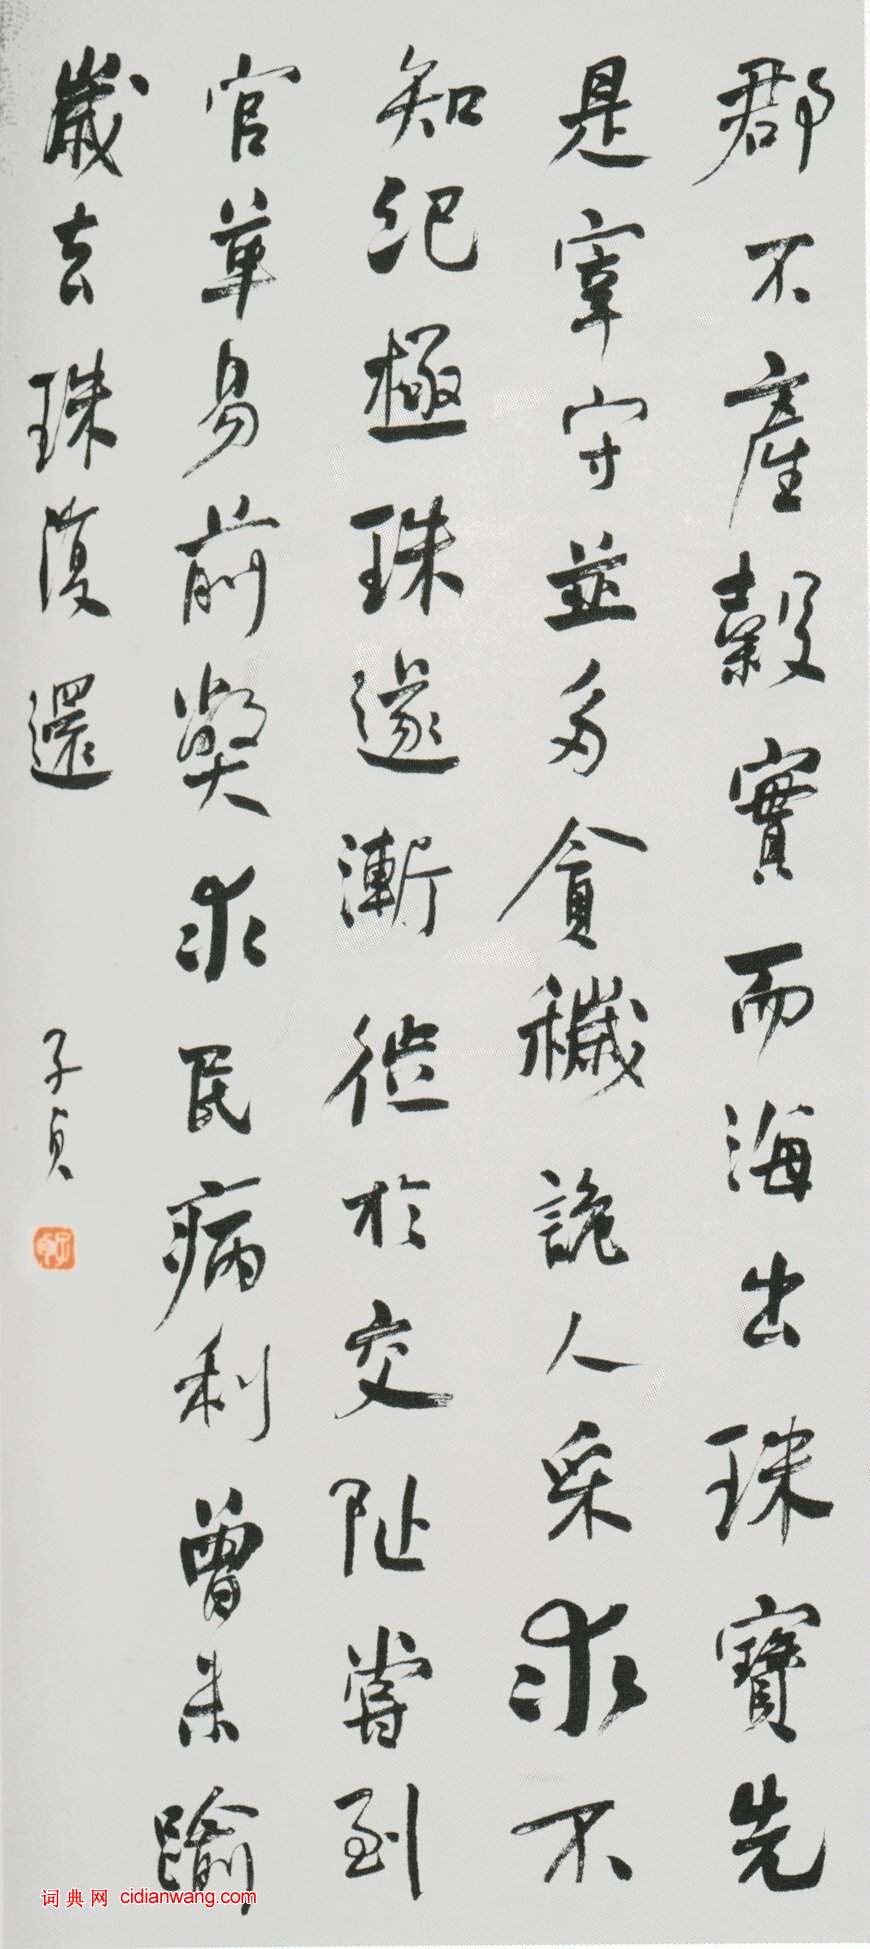 郡不產穀實而海出珠寶先
是宰守並多貪穢詭人采求不
知紀極珠遂漸徙於交阯嘗到
官革易前獘求民病利曾未踰
歲去珠復還
子貞
词典网 cidianwang.com